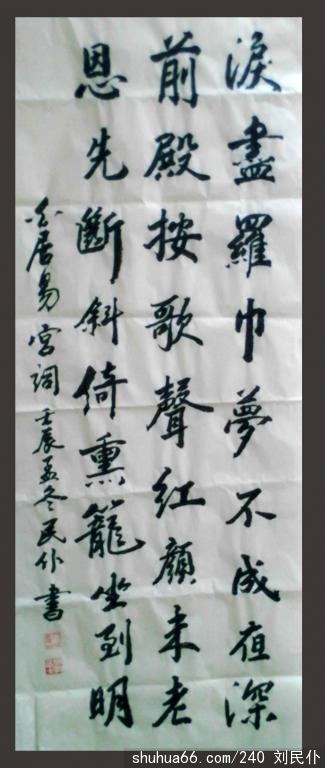 淚盡羅巾夢不成夜深
前殿按歌聲紅顏未老
恩先斷斜倚熏籠坐到明
白居易宮詞壬辰孟冬民仆書
shuhua66.com/240 刘民仆